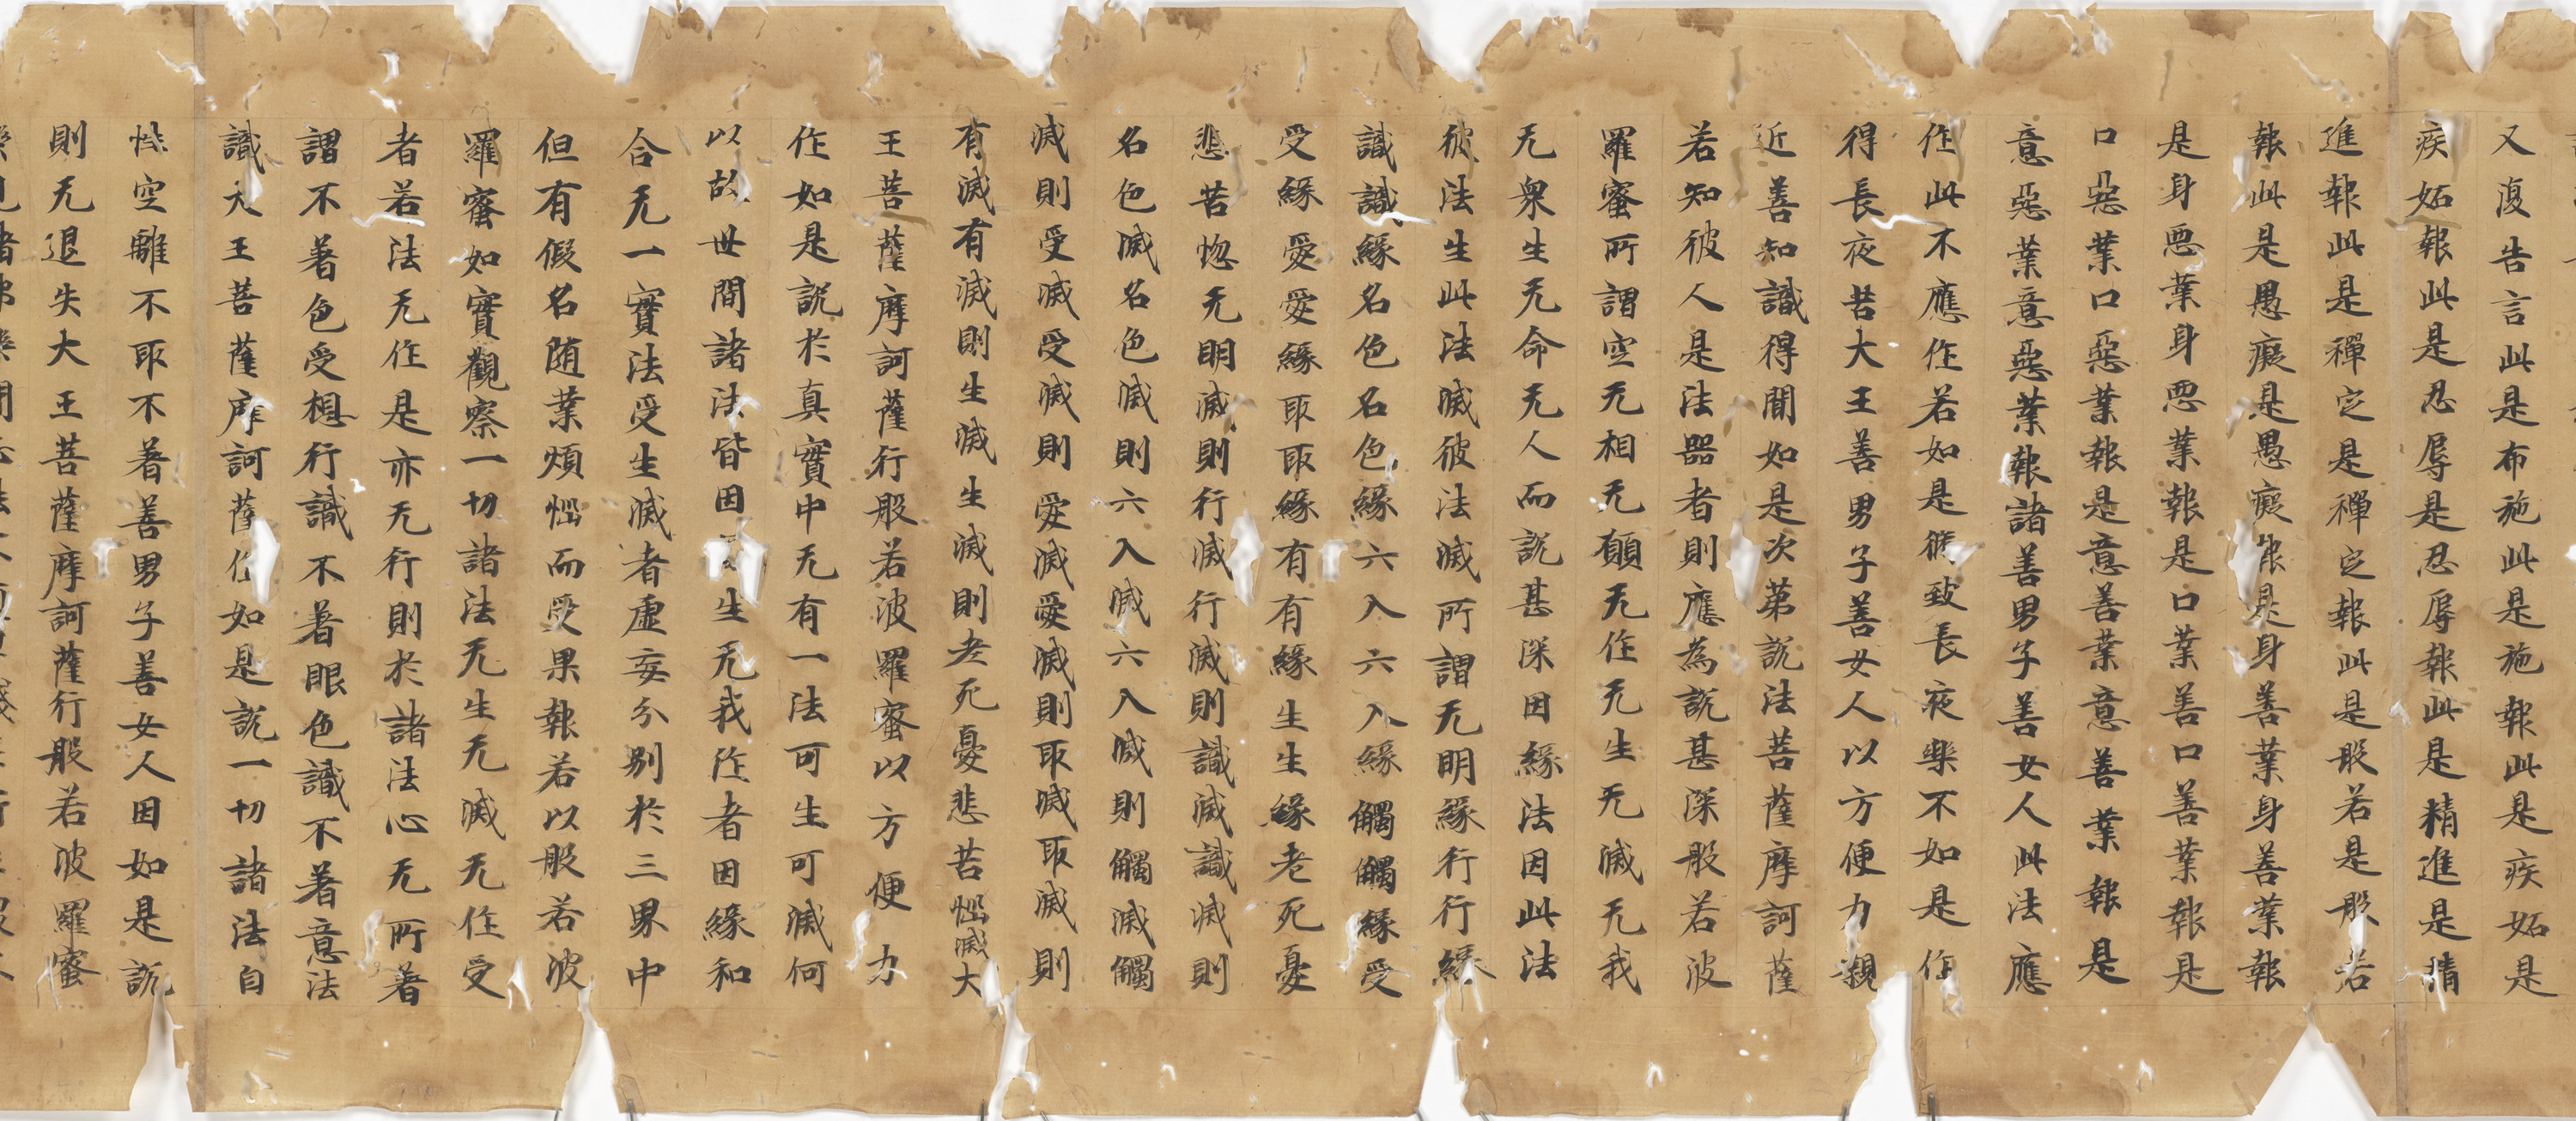 又復告言此是布施此是施報此是疾妬是
疾妬報此是忍辱是忍辱報此是精進是精
進報此是禪定是禪定報此是般若是般若
報此是愚癡是愚癡報是身善業身善業報
是身惡業身惡業報是口業善口善業報是
口惡業口惡業報是意善業意善業報是
意惡業意惡業報諸善男子善女人此法應
作此不應作若如是修致長夜樂不如是作
得長夜苦大王善男子善女人以方便力親
近善知識得聞如是次第說法菩薩摩訶薩
若知彼人是法器者則應為說甚深般若波
羅蜜所謂空无相无願无作无生无滅无我
无衆生无命无人而說甚深因緣法因此法
彼法生此法滅彼法滅所謂无明緣行行緣
識識緣名色名色緣六入六入緣觸觸緣受
受緣愛愛緣取取緣有有緣生生緣老死憂
悲苦惚无明滅則行滅行滅則識滅識滅則
名色滅名色滅則六入滅六入滅則觸滅觸
滅則受滅受滅則愛滅愛滅則取滅取滅則
有滅有滅則生滅生滅則老死憂悲苦惱滅大
王菩薩摩訶薩行般若波羅蜜以方便力
作如是說於真實中无有一法可生可滅何
以故世間諸法皆因生无我作者因緣和
合无一實法受生滅者虛妄分別於三界中
但有假名随業煩惱而受果報若以般若波
羅蜜如實觀察一切諸法无生无滅无作受
者若法无作是亦无行則於諸法心无所著
謂不著色受想行識不著眼色識不著意法
識大王菩薩摩訶薩作如是說一切諸法自
性空離不取不著善男子善女人因如是說
則无退失大王菩薩摩訶薩行般若波羅蜜